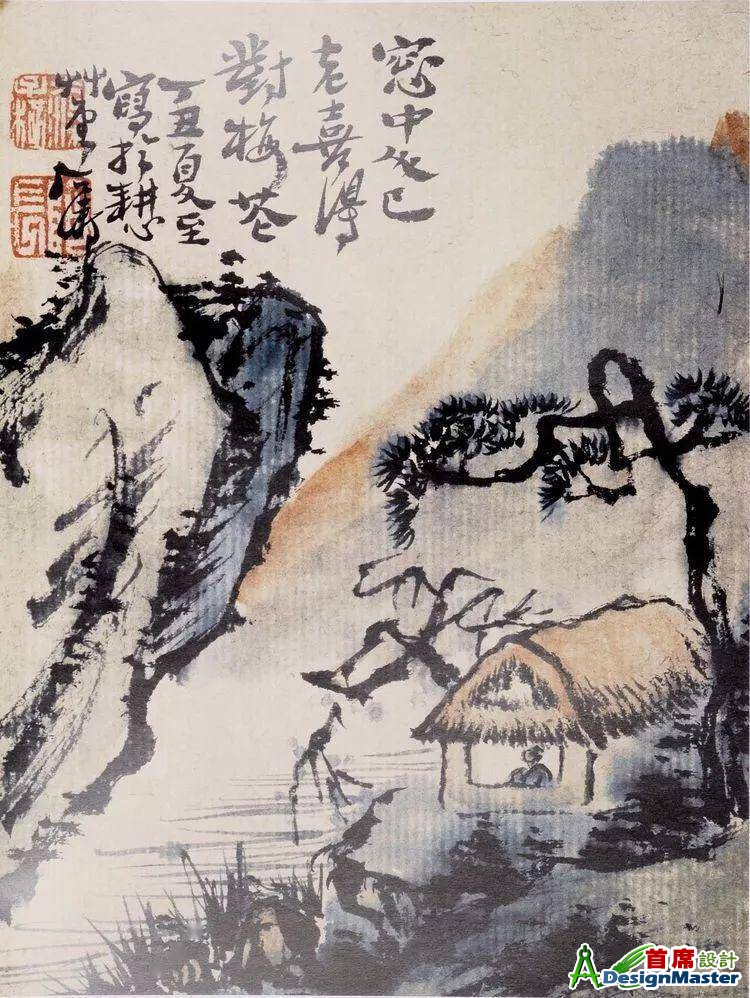 窓中人已
老喜得
對梅花
丁丑夏至
寫於耕心
艸堂
首席設計
DesignMaster